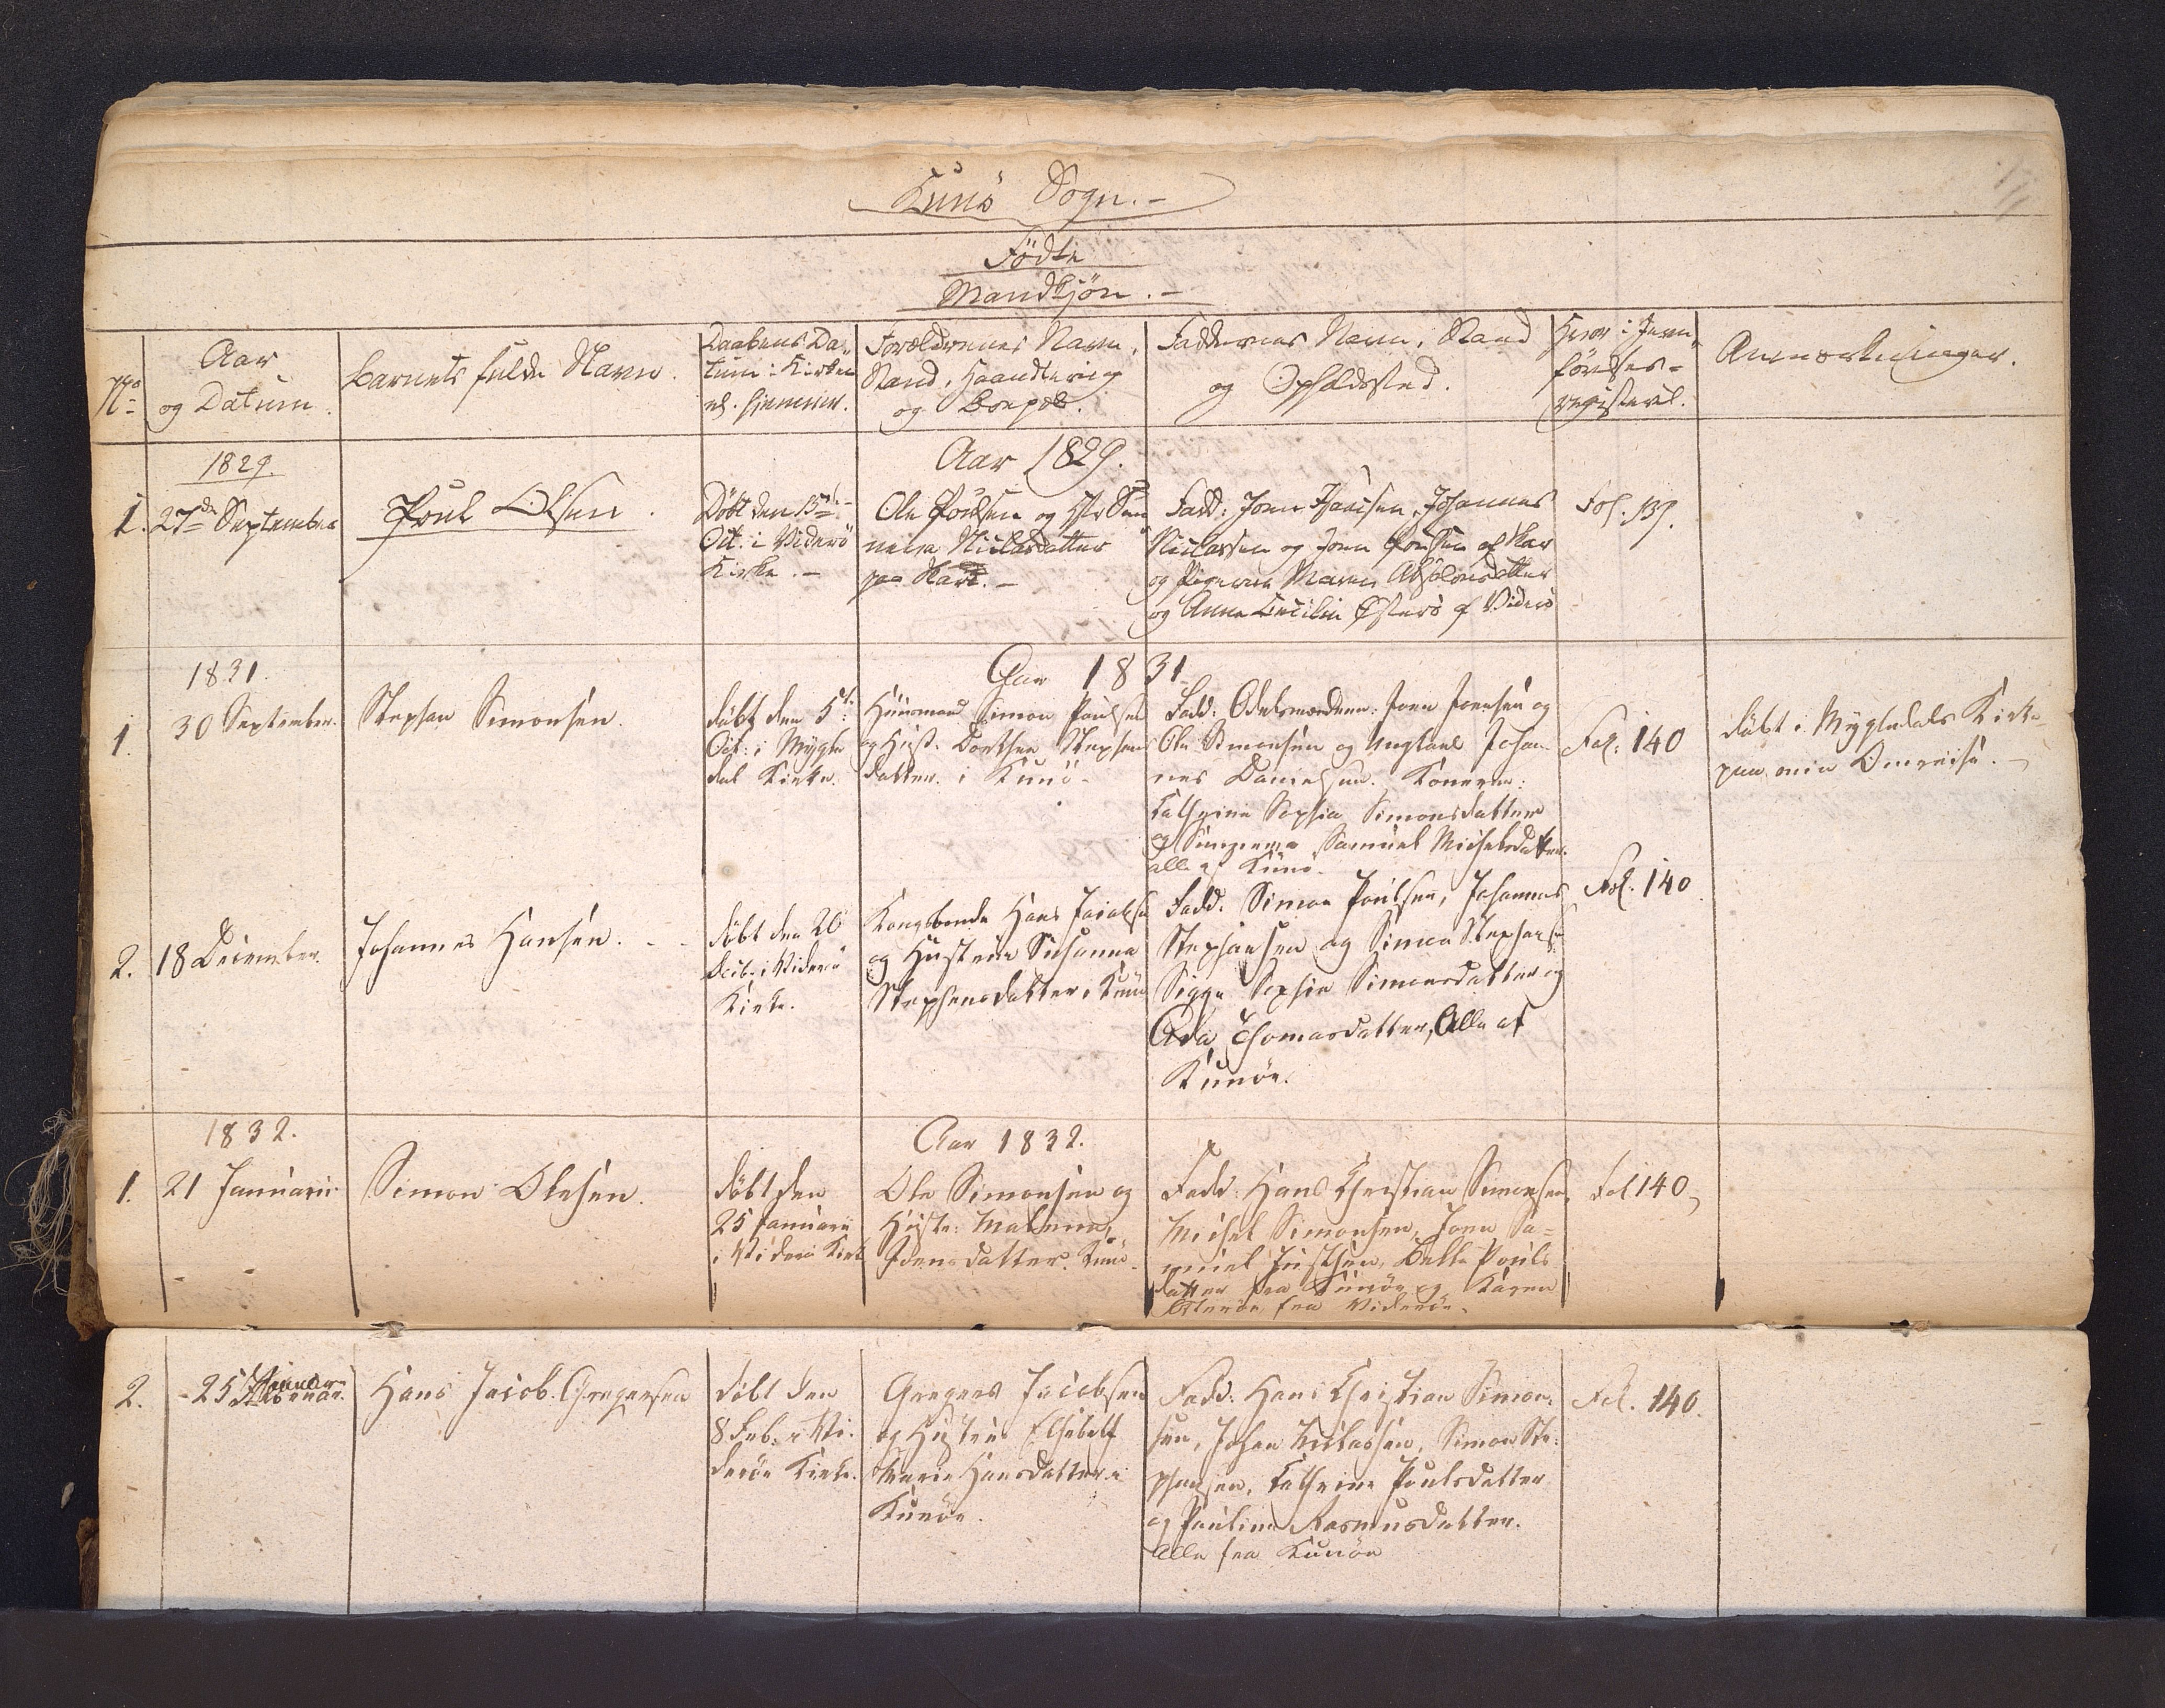 Kunö Sogn.-
Födte
Mandkjön.-
No
Aar
og Datum.
Barnets fulde Navn.
Daabens Da-
tum i Kirken
el. Hjemmet.
Forældrenes Navn,
Stand, Haandtering
og Boepæl.
Faddernes Navn, Stand
og Opholdssted.
Hvor i Jevn-
förelses-
registeret.
Anmærkninger.
1829.
Aar 1829.
1.
27de September
Poul Olsen.
Döbt den 15de
Oct. i Viderö
Kirke.-
Ole Poulsen og Hstr Sun-
neva Niclasdatter
paa Skarð.-
Fadd: Joen Hansen, Johannes
Niclassen og Joen Poulsen af Skar
og Pigerne Maren Absalonsdatter
og Anna Cecilia Österö af Viderö
Fol. 139.
1831.
Aar 1831
1.
30 September.
Stephan Simonsen.
döbt den 5te
Oct: i Mygle
dal Kirke.
Huusmand Simon Poulsen
og Hust. Dorthea Stephans
datter i Kunö-
Fadd: Odelsmændene: Joen Joensen og
Ole Simonsen og Ungkarl Johan-
nes Danielsen. Konerne:
Cathrine Sophia Simonsdatter
og Sunneva Samuel Michelsdatter
alle af Kunö-
Fol: 140
döbt i Mygledals Kirke
paa min Omreise.-
2.
18 December.
Johannes Hansen. - -
döbt den 26
Decb. i Viderö
Kirke.
Kongsbonde Hans Jacobsen
og Hustrue Susanna
Stephansdatter i Kunö
Fadd. Simon Poulsen, Johannes
Stephansen og Simon Stephansen
Sigga Sophia Simonsdatter og
Ada Thomasdatter, Alle af
Kunöe.
Fol. 140
1832.
Aar 1832.
1.
21 Januarii
Simon Olesen.
döbt den
25 Januarii
i Viderö Kirk
Ole Simonsen og
Hustr: Malene
Joensdatter. Kunö-
Fadd: Hans Christian Simonsen,
Michel Simonsen, Joen Sa-
muel Justsen, Bella Pouls
datter fra Kunöe og Karen
Österöe fra Videröe.
Fol 140
2.
25 Januar.
Hans Jacob Gregersen
döbt den
8 Feb. i Vi-
deröe Kirke.
Gregers Jacobsen
og Hustrue Elsebeth
Marie Hansdatter i
Kunöe.
Fadd. Hans Christian Simon-
sen, Johan Niclassen, Simon Ste-
phansen, Cathrine Poulsdatter
og Pauline Rasmusdatter.
Alle fra Kunöe
Fol. 140.